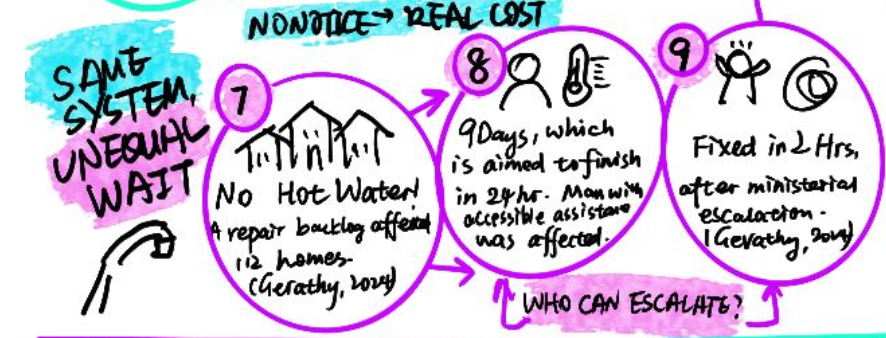 NO NOTICE → REAL COST
SAME
SYSTEM,
UNEQUAL
WAIT
7
No Hot Water!
A repair backlog affected
112 homes.
(Gerathy, 2024)
8
9 Days, which
is aimed to finish
in 24 hr. Man with
accessible assistance
was affected.
9
Fixed in 2 Hrs,
after ministerial
escalation.
(Gerathy, 2024)
WHO CAN ESCALATE?